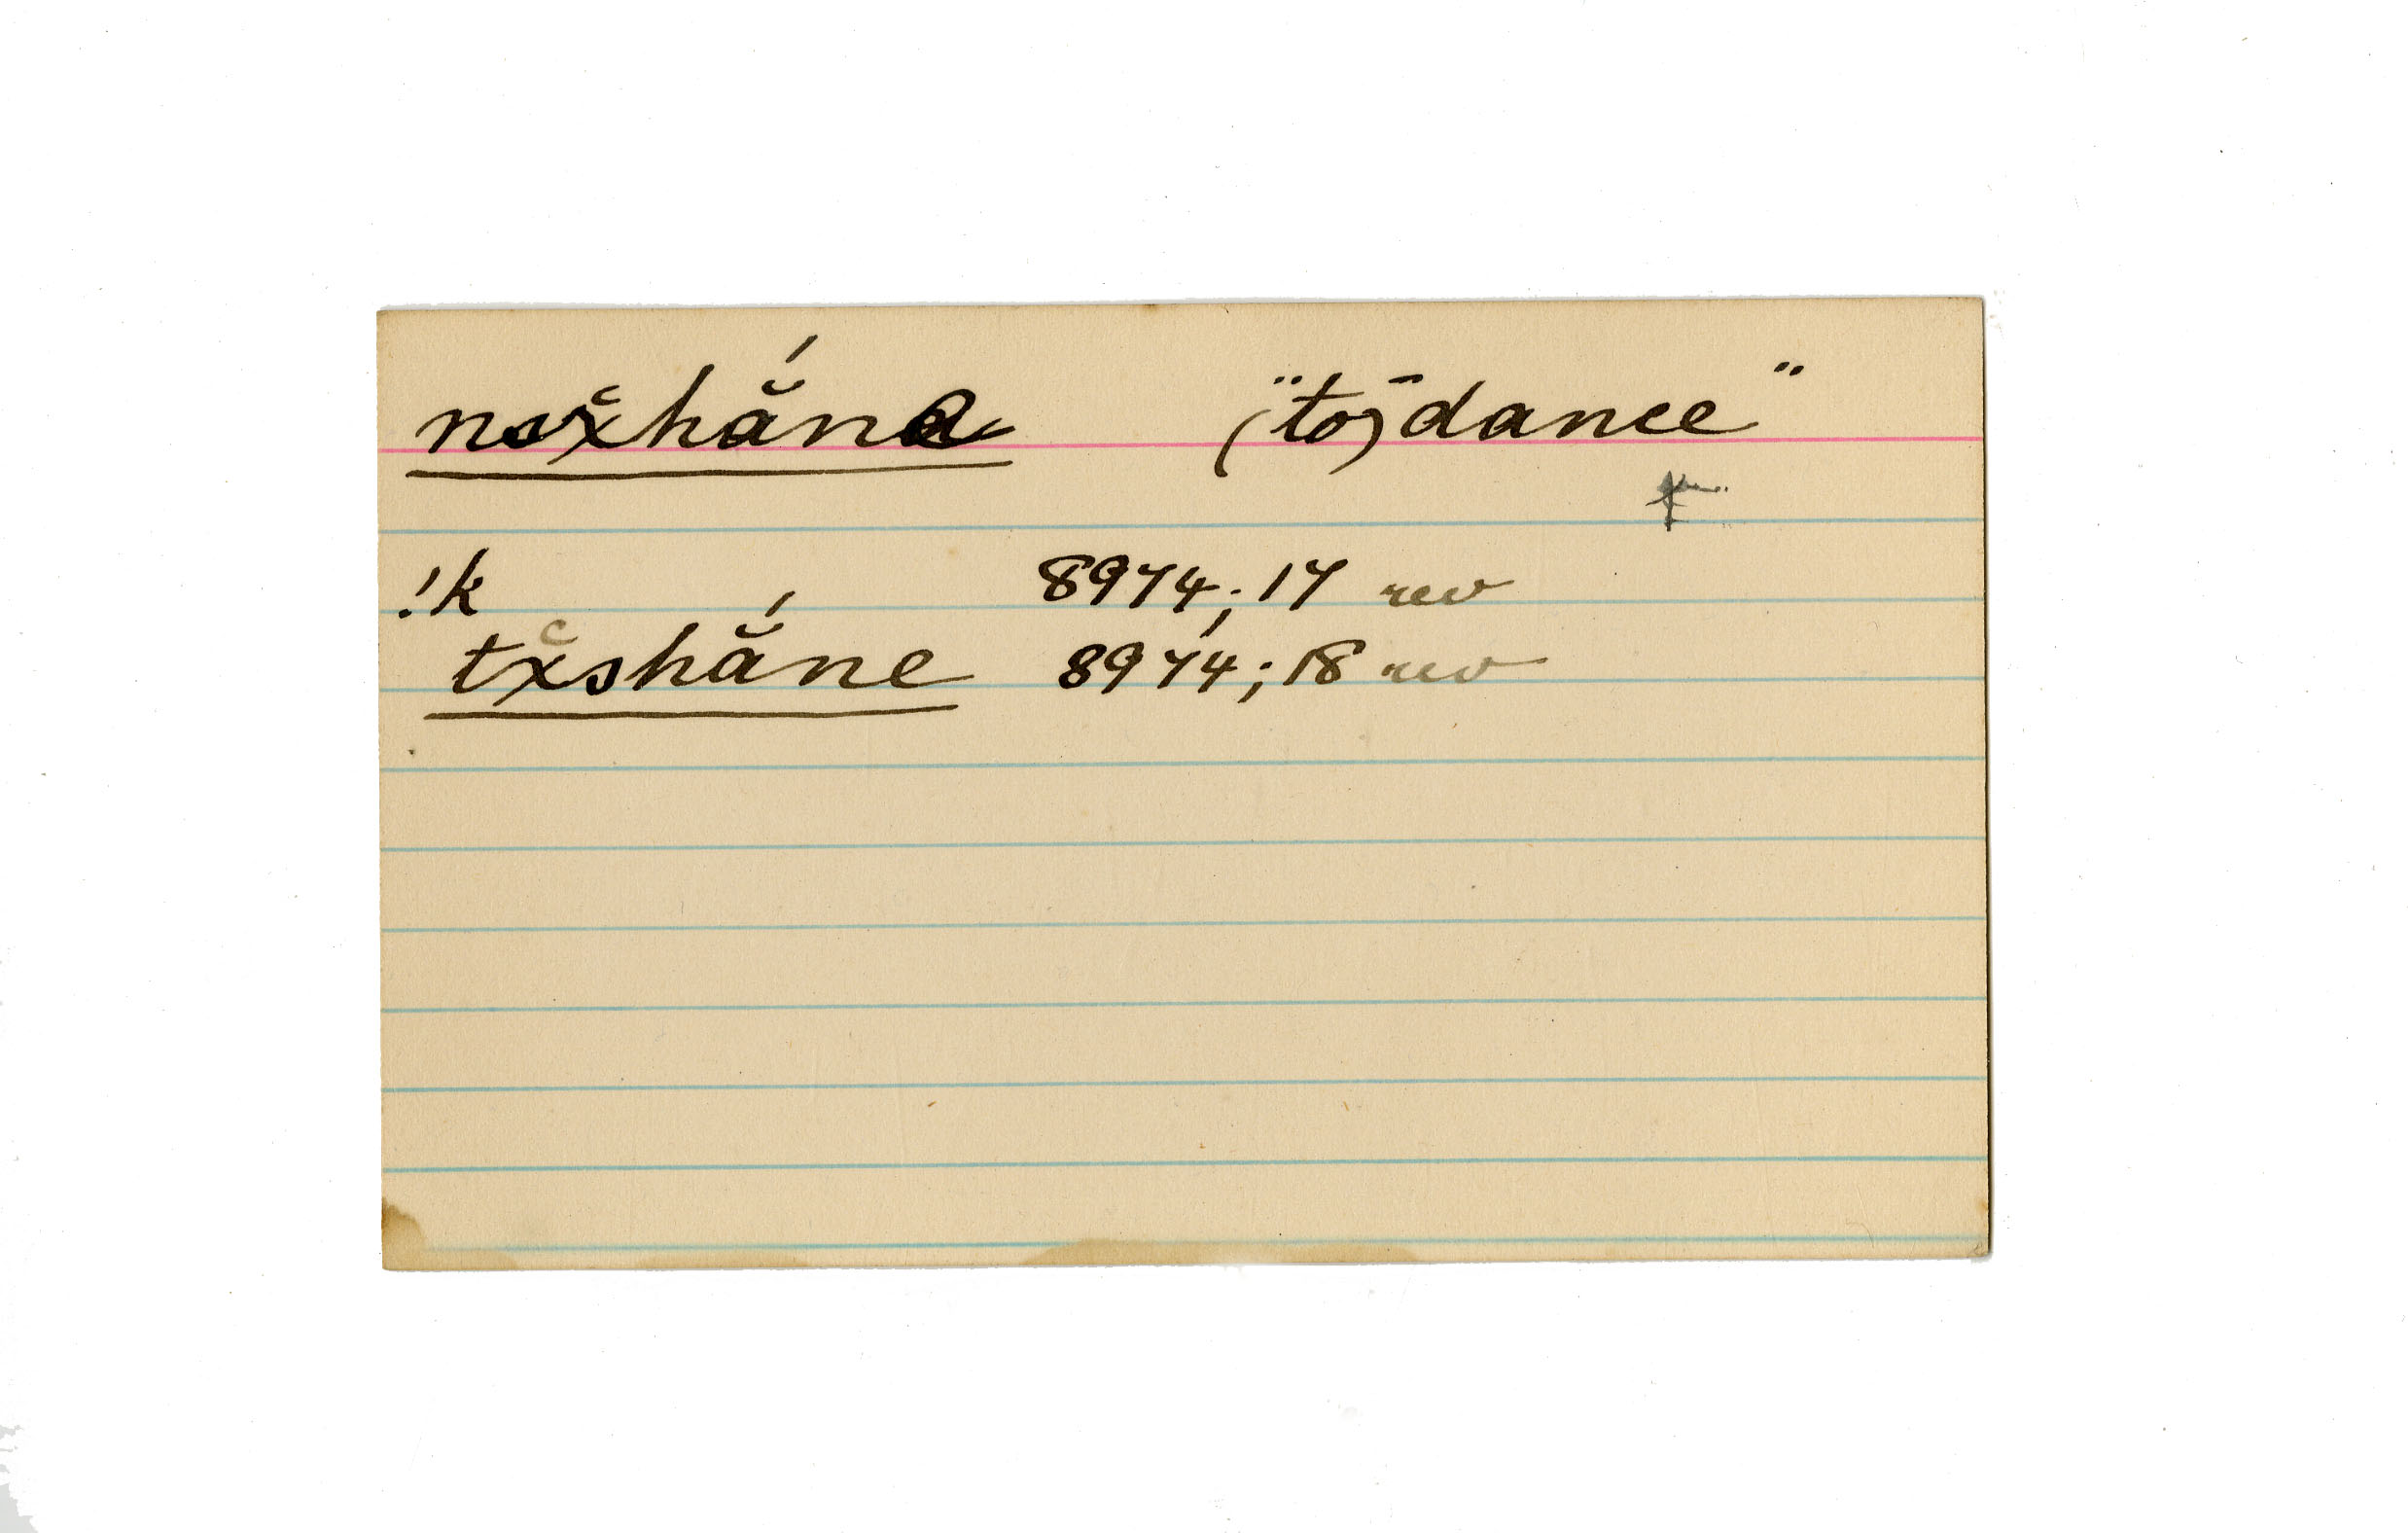 nsx̌hắne ("to) dance"
!k 8974; 17 rev
tx̌shắne 8974; 18 rev